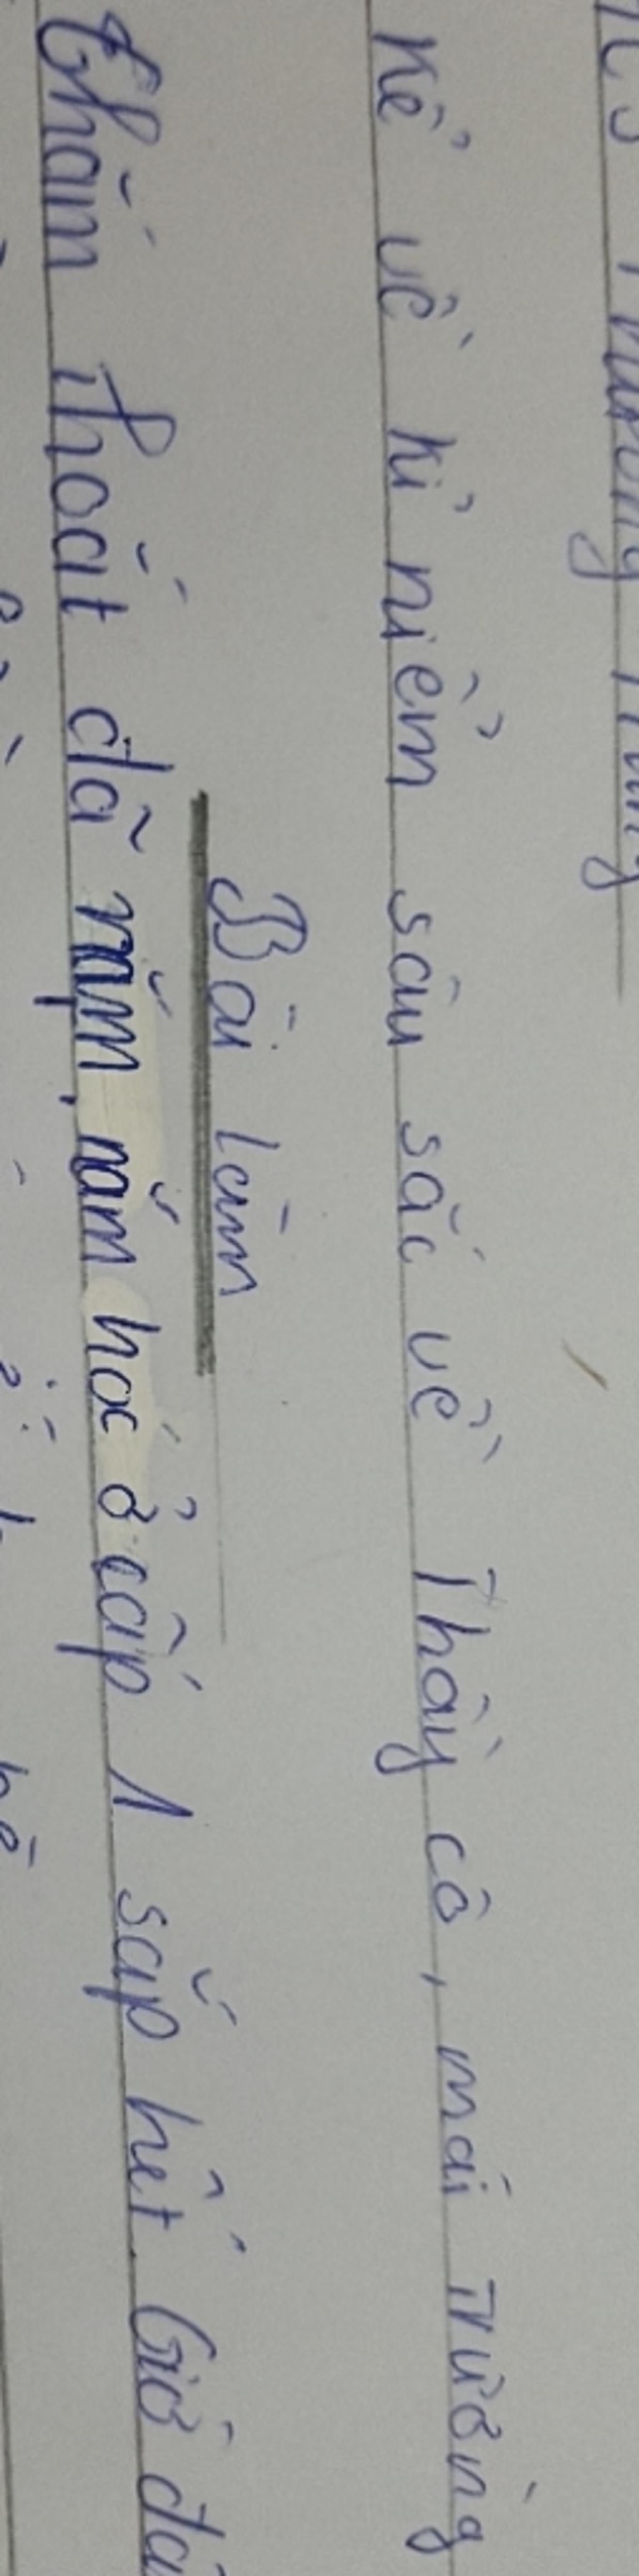 Kể về kỉ niểm sâu sắc về Thầy cô, mái trường
Bài làm
Thấm thoắt đã năm, năm học ở cấp 1 sắp hết. Giờ đâ